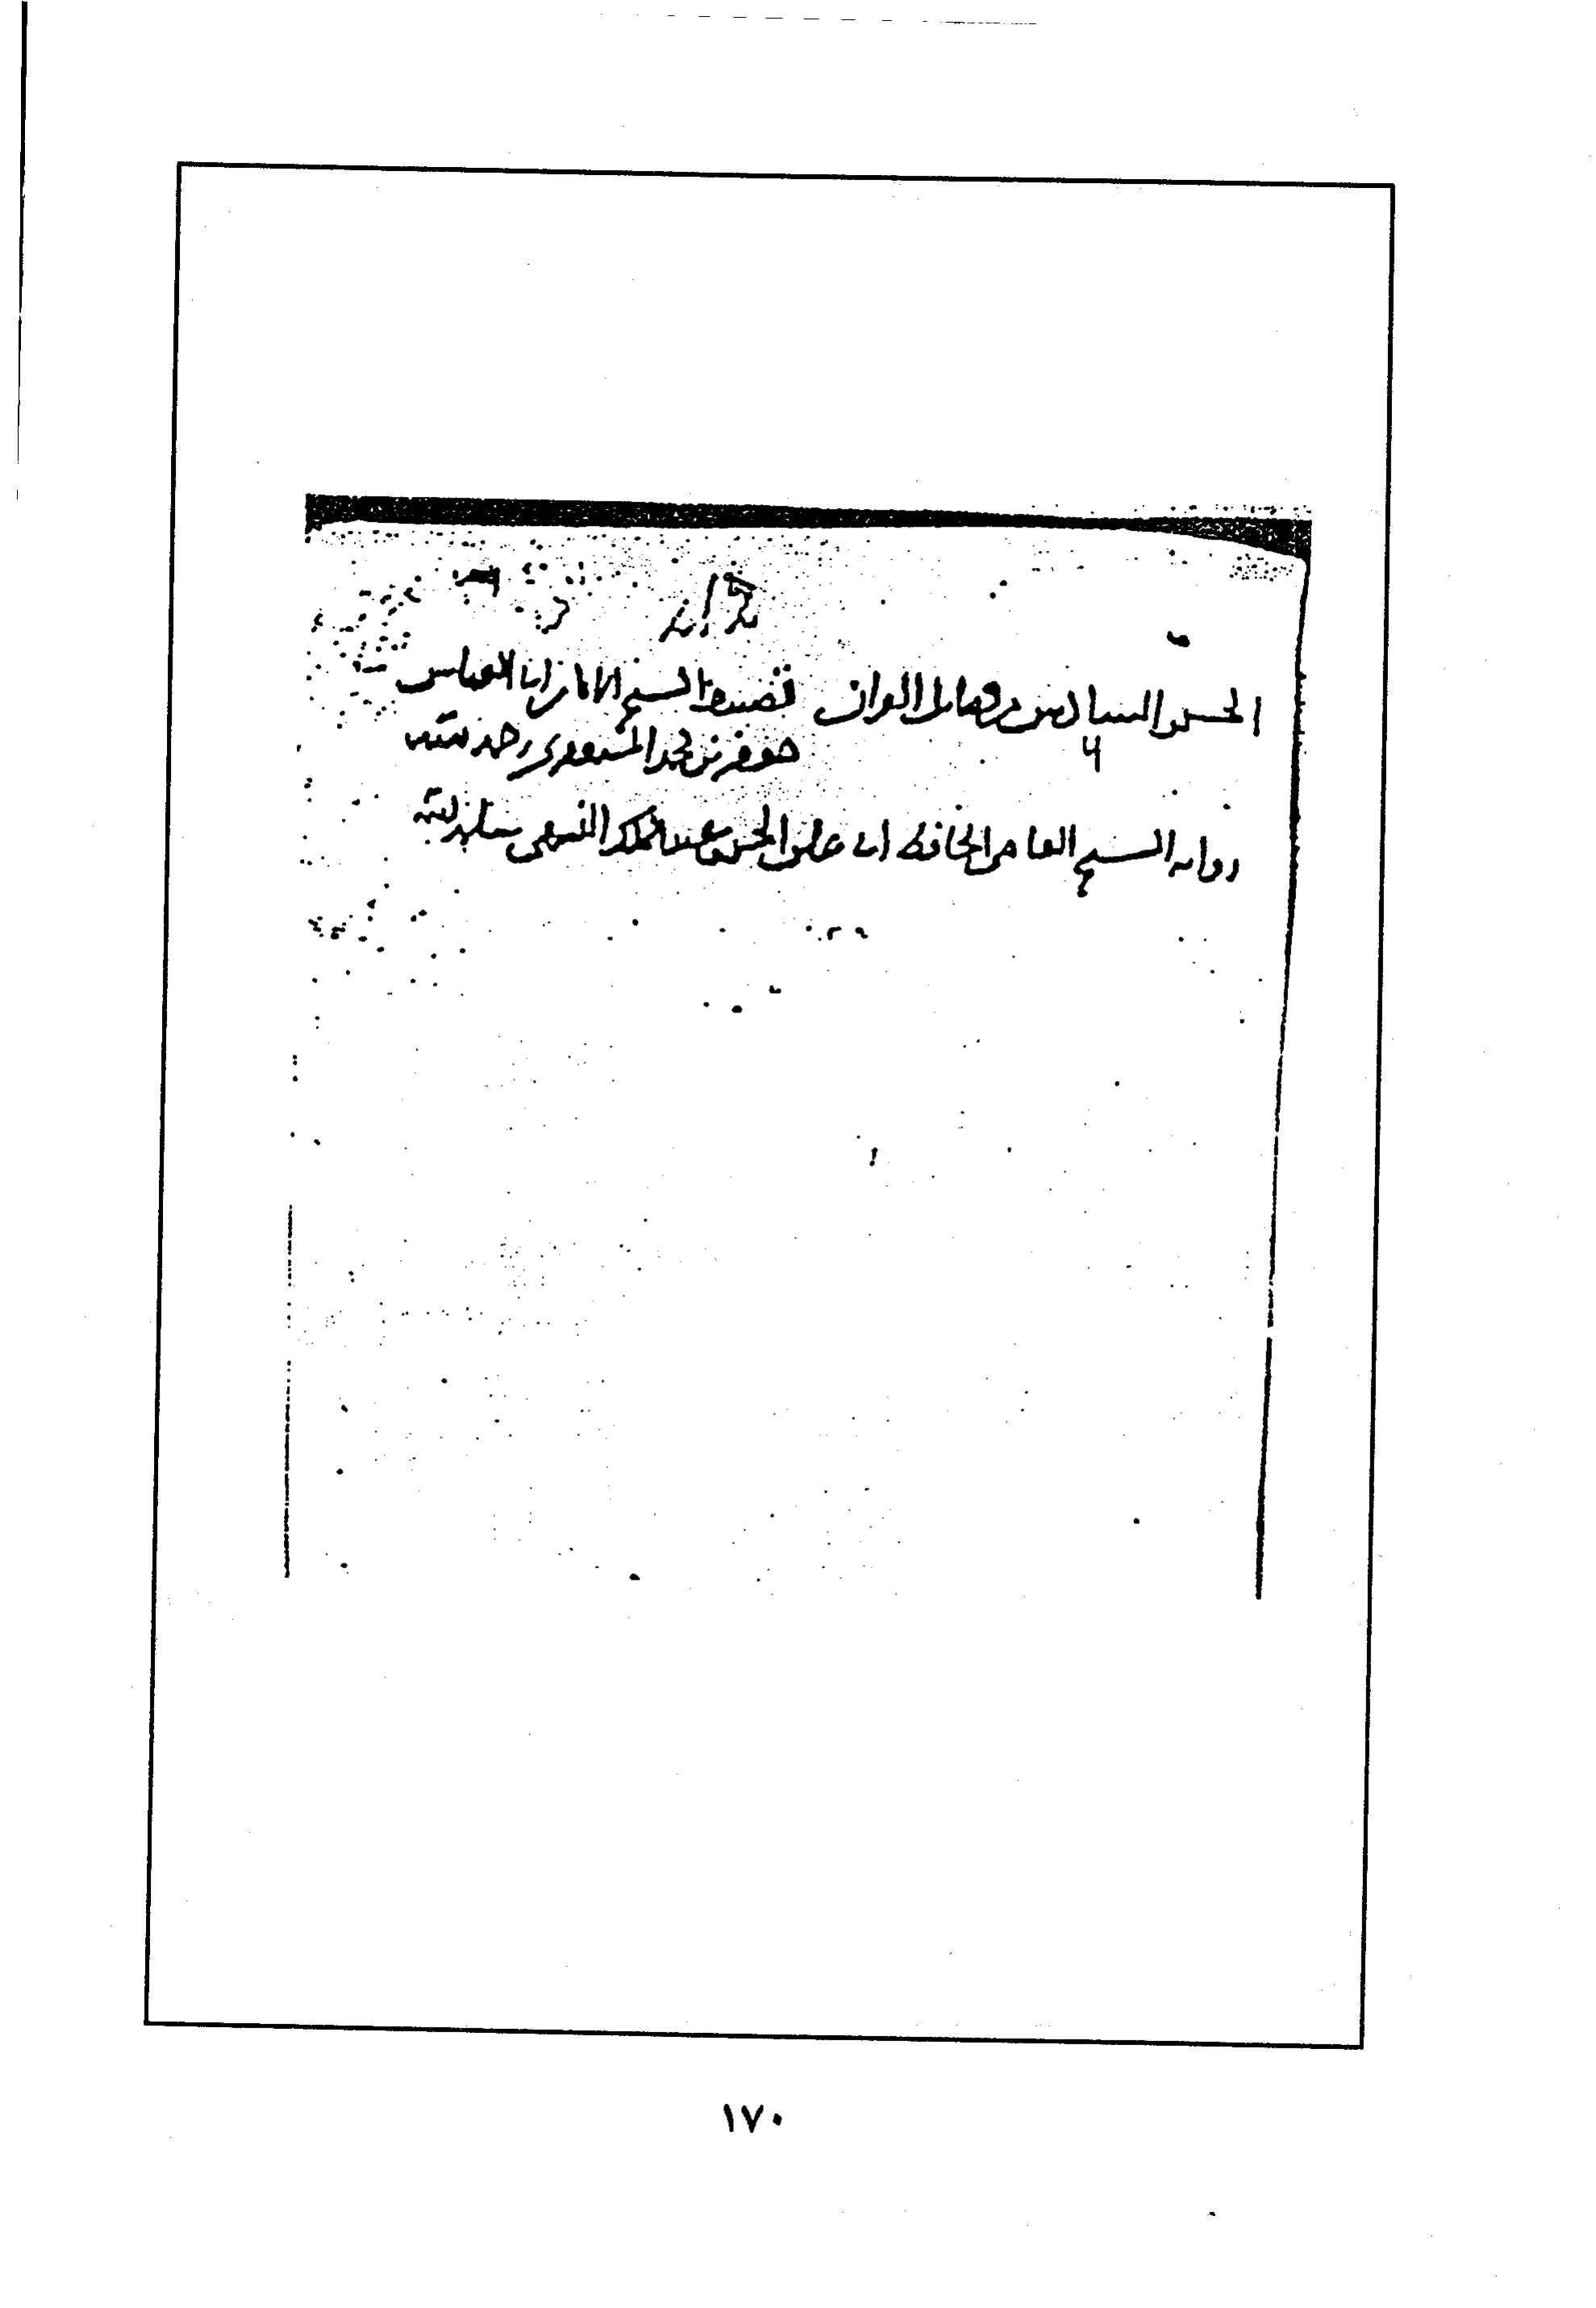 الجزء السادس من فضائل القران تصنيف الشيخ الامام ابى العباس
٦
جعفر بن محمد المستغفرى رحمة الله عليه
رواية الشيخ القاضى الحافظ ابى على الحسن بن عبد الملك النسفى
١٧٠